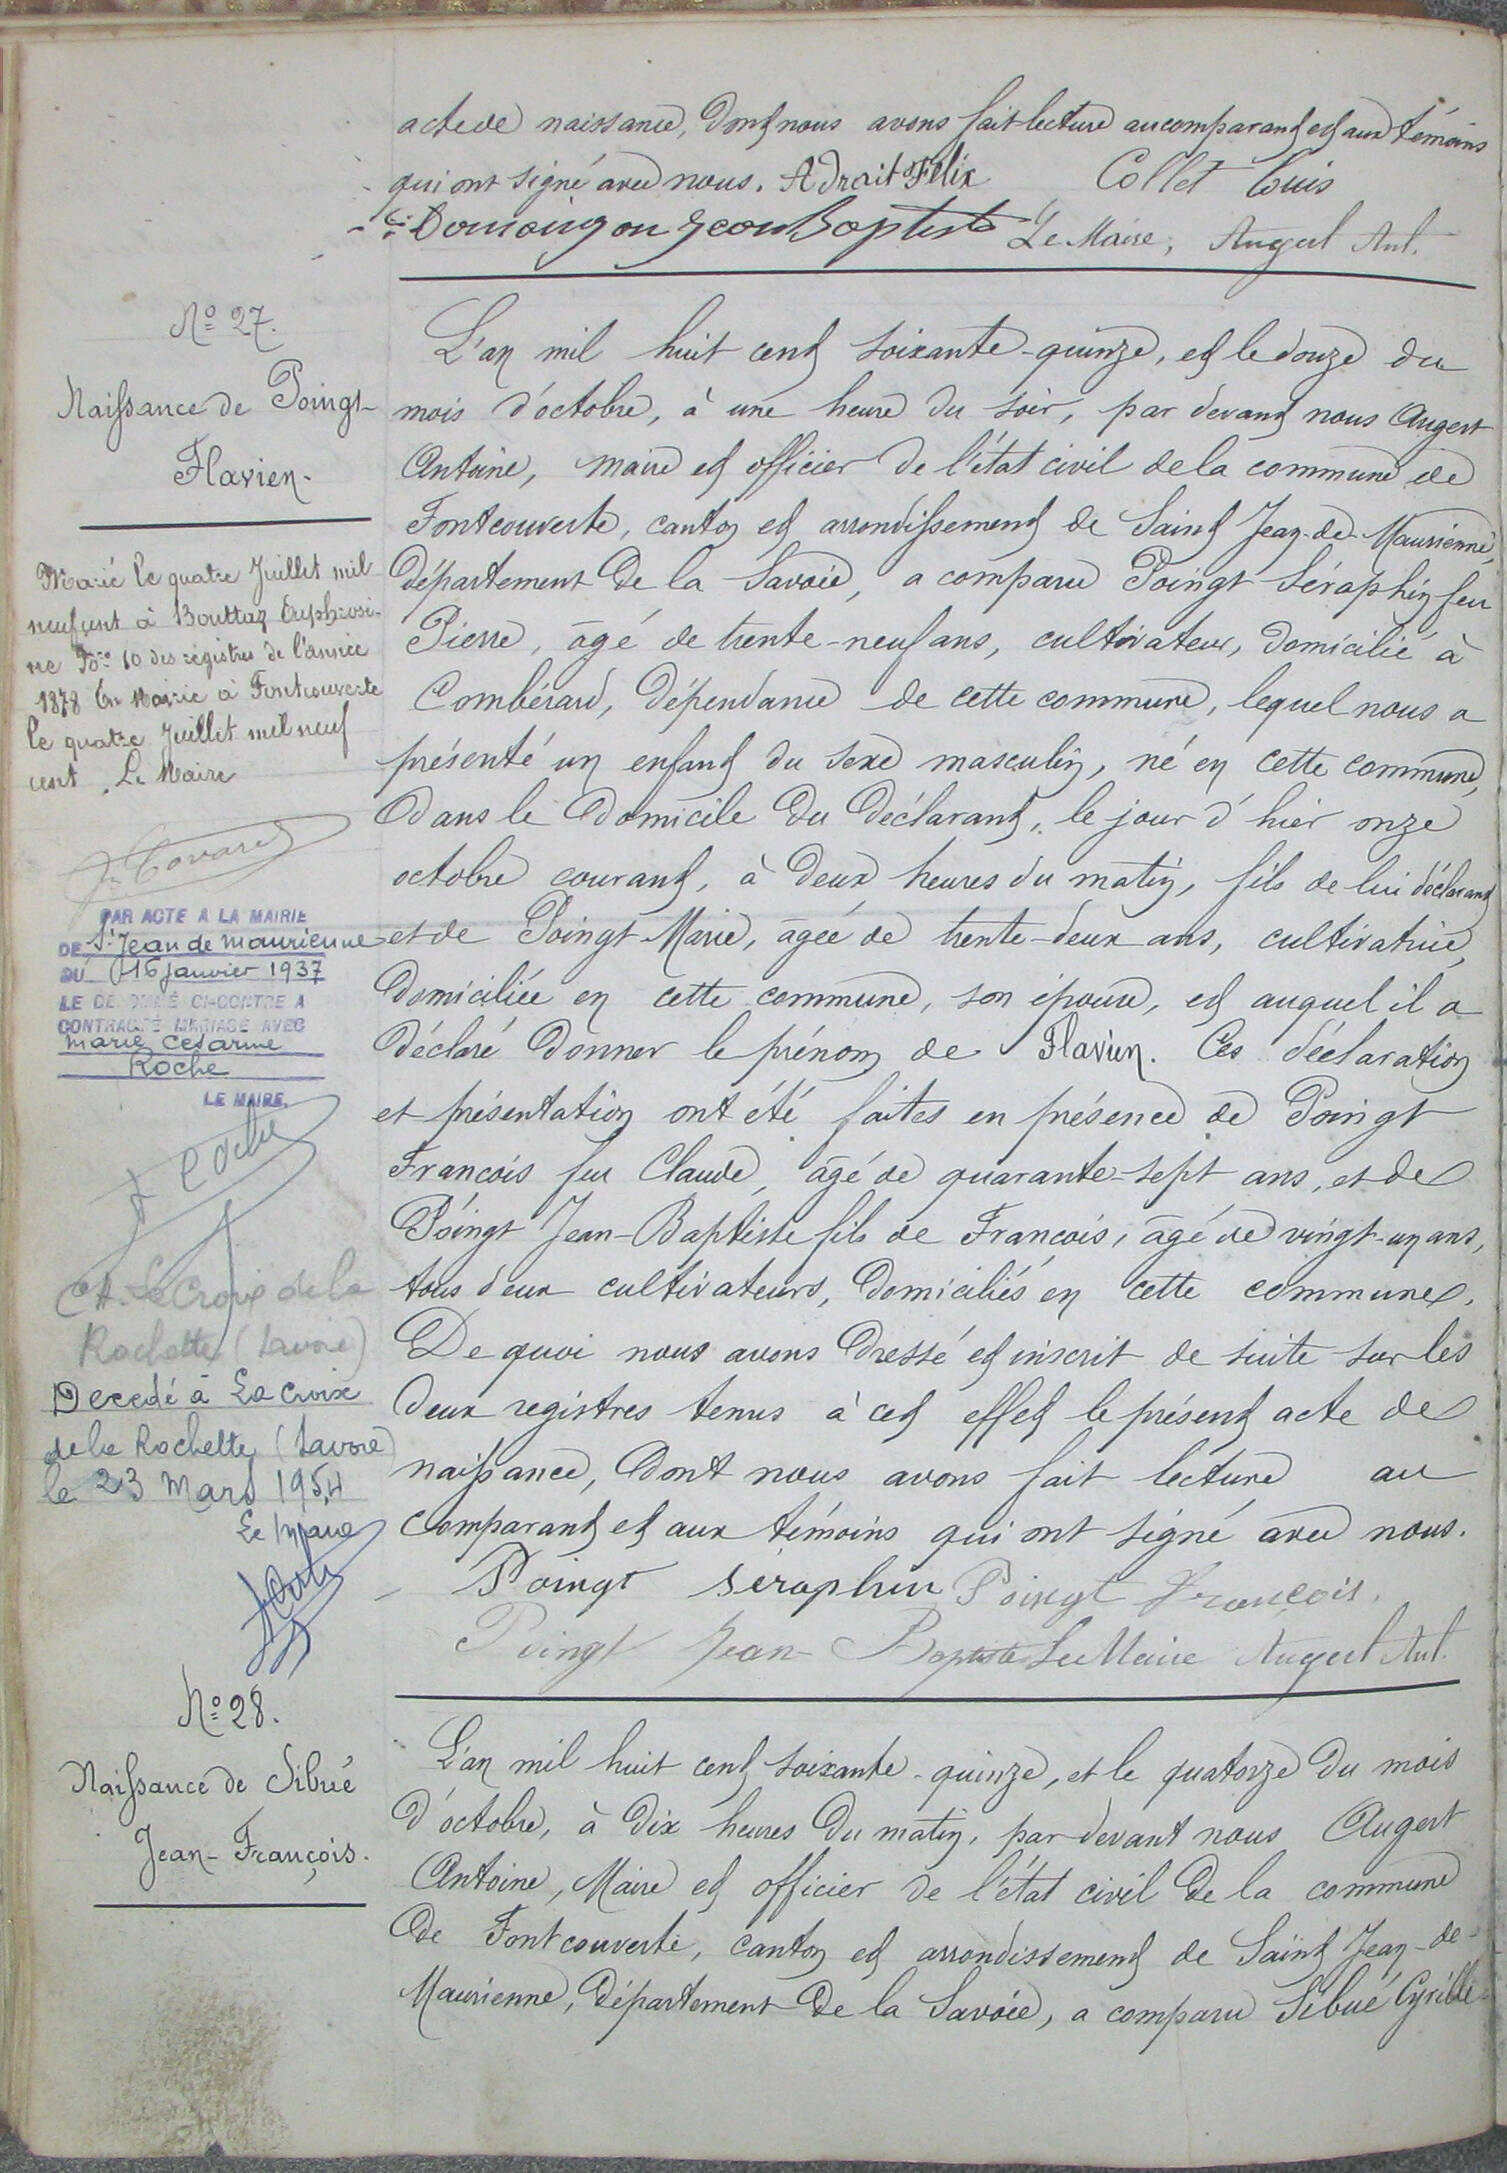 acte de naissance, dont nous avons fait lecture au comparant et aux témoins
qui ont signé avec nous. Adrait Félix Collet Louis
Jean Baptiste Le Maire, Augert Ant.
No 27.
Naissance de Poingt
Flavien.
Marié le quatre Juillet mil
neuf cent à Bouttaz Euphrosi-
ne No 10 des régistres de l'année
1878 En Mairie à Fontcouverte
le quatre Juillet mil neuf
cent. Le Maire
PAR ACTE A LA MAIRIE
DE St Jean de Maurienne
DU 16 janvier 1937
LE DÉNOMMÉ CI-CONTRE A
CONTRACTÉ MARIAGE AVEC
Marie Césarine
Roche
LE MAIRE,
La Croix de la
Rochette (Savoie)
Décédé à La Croix
de la Rochette (Savoie)
le 23 Mars 1954
Le Maire
L'an mil huit cent soixante-quinze, et le douze du
mois d'octobre, à une heure du soir, par devant nous Augert
Antoine, maire et officier de l'état civil de la commune de
Fontcouverte, canton et arrondissement de Saint Jean-de-Maurienne,
département de la Savoie, a comparu Poingt Séraphin feu
Pierre, âgé de trente-neuf ans, cultivateur, domicilié à
Combérard, dépendance de cette commune, lequel nous a
présenté un enfant du sexe masculin, né en cette commune,
dans le domicile du déclarant, le jour d'hier onze
octobre courant, à deux heures du matin, fils de lui déclarant
et de Poingt Marie, âgée de trente-deux ans, cultivatrice,
domiciliée en cette commune, son épouse, et auquel il a
déclaré donner le prénom de Flavien. Ces déclaration
et présentation ont été faites en présence de Poingt
François feu Claude, âgé de quarante-sept ans, et de
Poingt Jean-Baptiste fils de François, âgé de vingt-un ans,
tous deux cultivateurs, domiciliés en cette commune.
De quoi nous avons dressé et inscrit de suite sur les
deux registres tenus à cet effet le présent acte de
naissance, dont nous avons fait lecture au
comparant et aux témoins qui ont signé avec nous.
Poingt Séraphin Poingt François.
Poingt Jean-Baptiste Le Maire Augert Ant.
No 28.
Naissance de Sibué
Jean-François.
L'an mil huit cent soixante-quinze, et le quatorze du mois
d'octobre, à dix heures du matin, par devant nous Augert
Antoine, Maire et officier de l'état civil de la commune
de Fontcouverte, canton et arrondissement de Saint Jean-de-
Maurienne, département de la Savoie, a comparu Sibué Cyrille